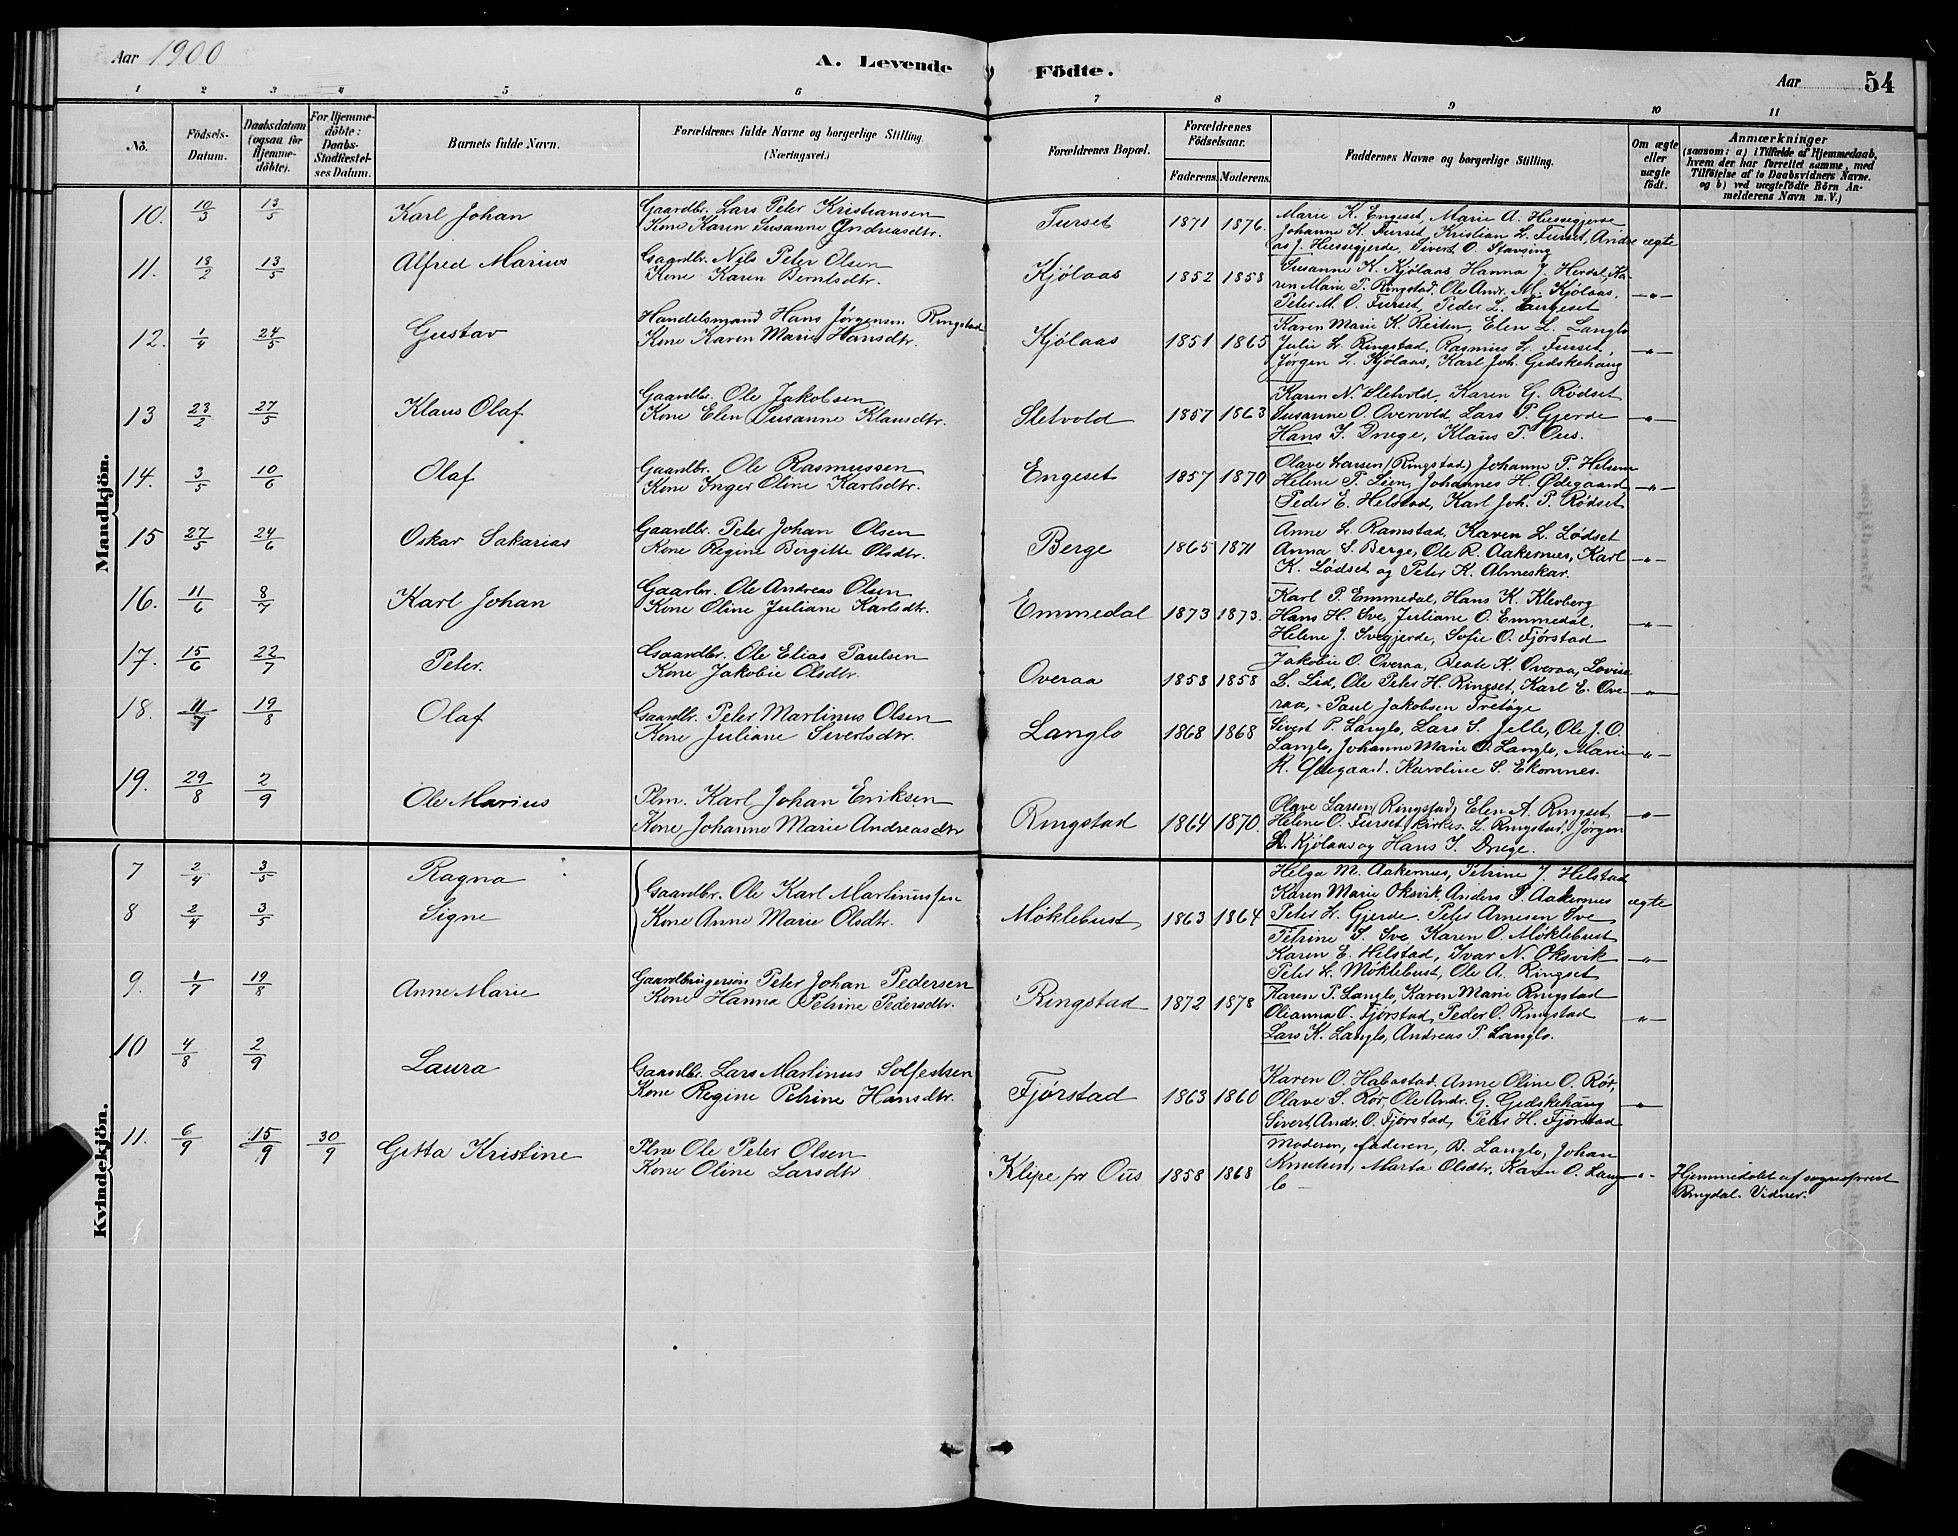 Aar 1900
A. Levende Födte.
Aar 54
1 2 3 4 5 6 7 8 9 10 11
No.
Födsels-Datum.
Daabsdatum (ogsaa for Hjemmedöbte).
For Hjemmedöbte: Daabs-Stadfæstelses Datum.
Barnets fulde Navn.
Forældrenes fulde Navne og borgerlige Stilling.
(Næringsvei.)
Forældrenes Bopæl.
Forældrenes Födselsaar.
Faderens. Moderens.
Faddernes Navne og borgerlige Stilling.
Om ægte eller uægte født.
Anmærkninger
(saasom: a) i Tilfælde af Hjemmedaab, hvem der har forrettet samme, med Tilföielse af to Daabsvidners Navne, og b) ved uægtefödte Börn Anmelderens Navn m. V.)
Mandkjön.
10. 10/3 13/5 Karl Johan
Gaardbr. Lars Peter Kristiansen
Kone Karen Susanne Andreasdtr.
Furset 1871 1876.
Marie K. Engeset, Marie A. Hessegjerde
Johanne K. Furset, Kristian L. Furset, Andre
as J. Hessegjerde, Sivert O. Stavsing
ægte
11. 18/2 13/5 Alfred Marius
Gaardbr. Nils Peter Olsen
Kone Karen Berntsdtr.
Kjölaas 1852 1858
Susanne K. Kjölaas, Hanna J. Herdal, Ka-
ren Marie P. Ringstad, Ole Andr. M. Kjölaas.
Peter M. O. Furset, Peder L. Engeset
—"—
12. 1/4 24/5 Gustav
Handelsmand Hans Jørgensen Ringstad
Kone Karen Marie Hansdtr.
Kjölaas 1851 1865
Karen Marie K. Reiten, Elen L. Langlo
Julie L. Ringstad, Rasmus L. Furset,
Jørgen L. Kjölaas, Karl Joh. Gidskehaug
—"—
13 23/2 27/5 Klaus Olaf
Gaardbr. Ole Jakobsen
Kone Elen Susanne Klausdtr.
Sletvold 1857 1863
Karen N. Sletvold, Karen G. Rødset
Susanne O. Overvold, Lars P. Gjerde
Hans J. Drege, Klaus P. Ous.
—"—
14. 3/5 10/6 Olaf
Gaardbr. Ole Rasmussen
Kone Inger Oline Karlsdtr.
Engeset 1857 1870
Olave Larsen (Ringstad) Johanne P. Helsem
Helene P. Lien, Johannes H. Ødegaard
Peder E. Helstad, Karl Joh. P. Rødset
—"—
15 27/5 24/6 Oskar Sakarias
Gaardbr. Peter Johan Olsen
Kone Regine Birgitte Olsdtr.
Berge 1865 1871
Anne L. Ramstad, Karen L. Lødset
Anna S. Berge, Ole R. Aakernes, Karl
K. Lødset og Peter K. Almeskar.
—"—
16. 11/6 8/7 Karl Johan
Gaarbr. Ole Andreas Olsen
Kone Oline Juliane Karlsdtr.
Emmedal 1873 1873.
Karl P. Emmedal, Hans K. Klevberg
Hans H. Sve, Juliane O. Emmedal,
Helene J. Svegjerde, Sofie O. Fjørstad
—"—
17. 15/6 22/7 Peter.
Gaardbr. Ole Elias Paulsen
Kone Jakobie Olsdtr.
Overaa 1858 1858
Jakobie O. Overaa, Beate K. Overaa, Lovise
L. Lid, Ole Peter H. Ringset, Karl E. Ove-
raa, Paul Jakobsen Tretøge
—"—
18. 11/7 19/8 Olaf
Gaardbr. Peter Martinus Olsen
Kone Juliane Sivertsdtr.
Langlo 1868 1868
Sivert P. Langlo, Lars S. Jelle, Ole J. O.
Langlo, Johanne Marie O. Langlo, Marie
K. Ødegaard. Karoline S. Ekornnes.
—"—
19. 29/8 2/9 Ole Marius
Plm. Karl Johan Eriksen
Kone Johanne Marie Andreasdtr
Ringstad 1864 1870.
Olave Larsen (Ringstad) Elen A. Ringset
Helene O. Furset, L. Ringstad, Jørgen
L. Kjölaas og Hans J. Drege.
—"—
Kvindekjön.
7 2/4 3/5 Ragna
8 2/4 3/5 Signe
Gaardbr. Ole Karl Martinussen
Kone Anne Marie Olsdtr.
Møklebust 1863 1864
Helga M. Aakernes, Petrine J. Helstad
Karen Marie Oksvik, Anders P. Aakernes
Peter L. Gjerde. Peter Arnesen Sve
ægte
Petrine S. Sve, Karen O. Møklebust
Karen E. Helstad, Ivar N. Oksvik
Peter L. Møklebust, Ole A. Ringset
—"—
9. 1/7 19/8 Anne Marie
Gaardbrugersøn Peter Johan Pedersen
Kone Hanna Petrine Pedersdtr.
Ringstad 1872 1878
Karen P. Langlo, Karen Marie Ringstad
Olianna O. Fjørstad, Peder O. Ringstad
Lars K. Langlo, Andreas P. Langlo.
—"—
10 4/8 2/9 Laura
Gaardbr. Lars Martinus Solfestsen
Kone Regine Petrine Hansdtr.
Fjørstad 1863 1860
Karen O. Habostad, Anne Oline O. Rør,
Olave S. Rør, Ole Andr. G. Gidskehaug
Sivert Andr. O. Fjørstad, Peter H. Fjørstad
—"—
11. 6/9 15/9 30/9 Gitta Kristine
Plm Ole Peter Olsen
Kone Oline Larsdtr
Klipe pr Ous 1858 1868
Moderen, Faderen, B. Langlo, Johan
Knutsen, Marta Olsdtr, Karen O. Lang-
lo —
-"-
Hjemmedøbt af sogneprest
Ringdal. Vidner.